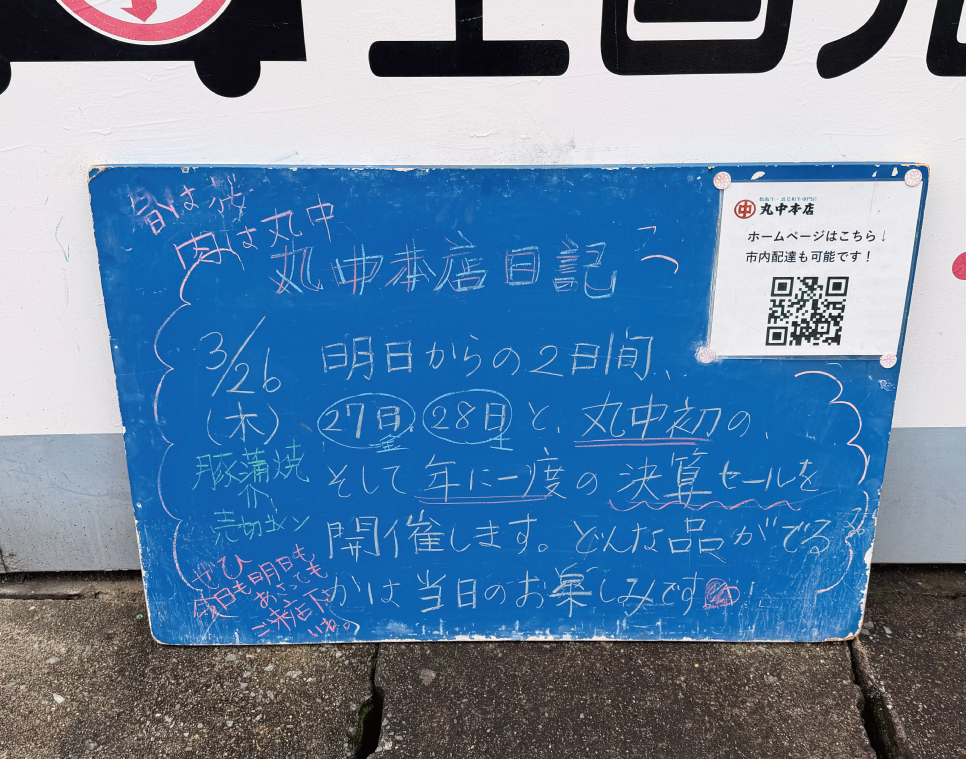 旬は
肉は丸中
丸中本店日記
3/26
(木)
明日からの2日間、
27日金、28日土と、丸中初の、
そして年に一度の決算セールを
開催します。どんな品がでる
かは当日のお楽しみです
豚蒲焼
売切メン
ぜひ
今日も明日も
あさっても
ご来店下さ
いね。
中 丸中本店
ホームページはこちら↓
市内配達も可能です!